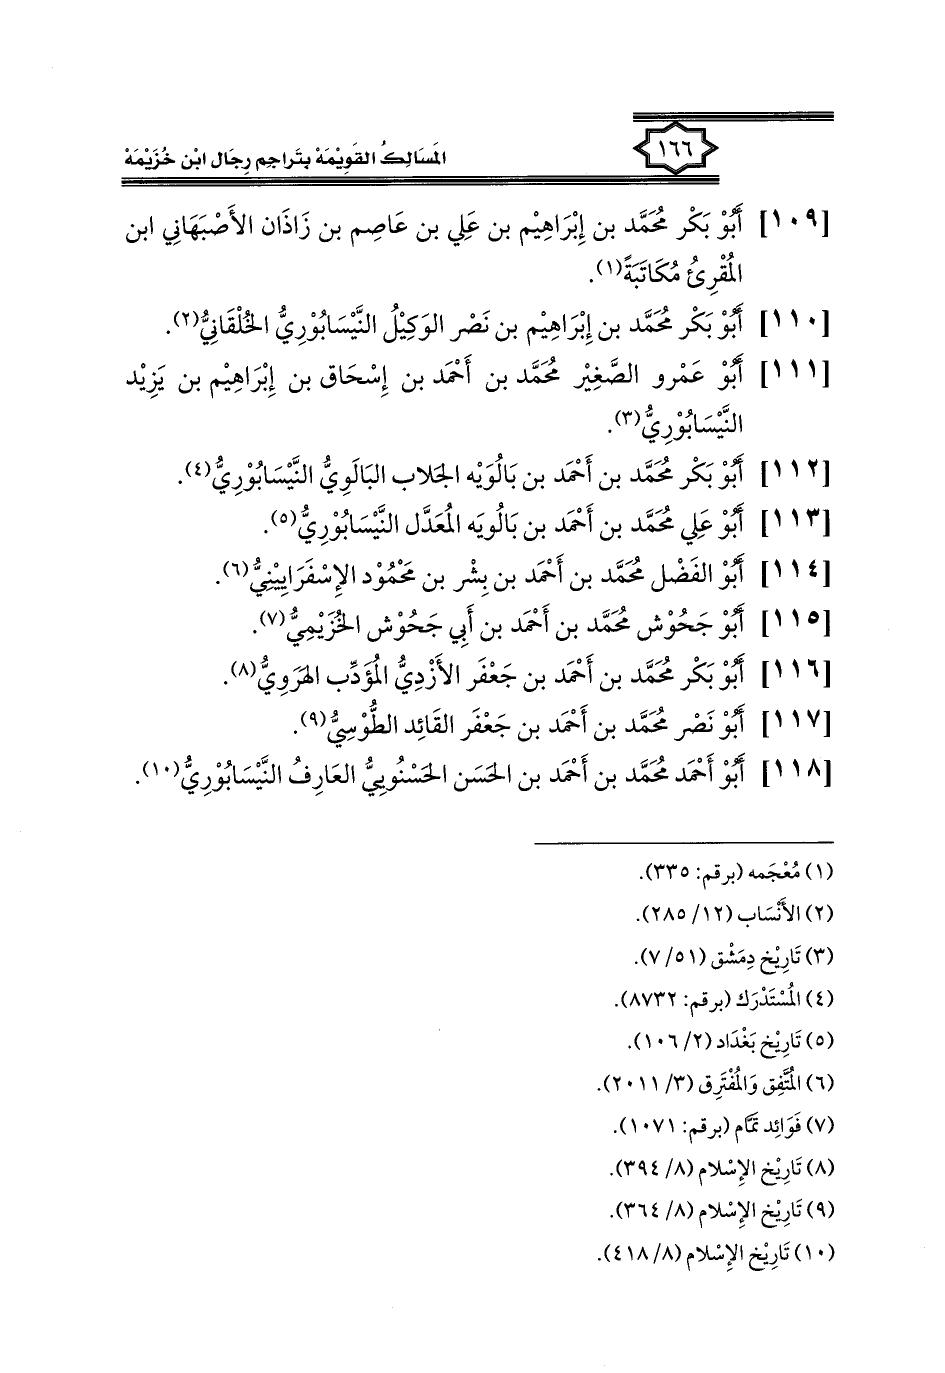 ١٦٦
المَسَالِكُ القَوِيْمَة بِتَرَاجِم رِجَال ابْن خُزَيْمَة
[١٠٩] أَبُوْ بَكْر مُحَمَّد بن إِبْرَاهِيْم بن عَلِي بن عَاصِم بن زَاذَان الأَصْبَهَاني ابن
المُقْرِئُ مُكَاتَبَةً(١).
[١١٠] أَبُوْ بَكْر مُحَمَّد بن إِبْرَاهِيْم بن نَصْر الوَكِيْلُ النَّيْسَابُوْرِيُّ الخُلْقَانِيُّ(٢).
[١١١] أَبُوْ عَمْرو الصَّغِيْر مُحَمَّد بن أَحْمَد بن إِسْحَاق بن إِبْرَاهِيْم بن يَزِيْد
النَّيْسَابُوْرِيُّ(٣).
[١١٢] أَبُوْ بَكْر مُحَمَّد بن أَحْمَد بن بَالُوَيْه الجَلاب البَالَوِيُّ النَّيْسَابُوْرِيُّ(٤).
[١١٣] أَبُوْ عَلِي مُحَمَّد بن أَحْمَد بن بَالُويَه المُعَدَّل النَّيْسَابُوْرِيُّ(٥).
[١١٤] أَبُوْ الفَضْل مُحَمَّد بن أَحْمَد بن بِشْر بن مَحْمُوْد الإِسْفَرَايِيْنِيُّ(٦).
[١١٥] أَبُوْ جَحُوْش مُحَمَّد بن أَحْمَد بن أَبِي جَحُوْش الخُزَيْمِيُّ(٧).
[١١٦] أَبُوْ بَكْر مُحَمَّد بن أَحْمَد بن جَعْفَر الأَزْدِيُّ المُؤَدِّب الهَرَوِيُّ(٨).
[١١٧] أَبُوْ نَصْر مُحَمَّد بن أَحْمَد بن جَعْفَر القَائِد الطُّوْسِيُّ(٩).
[١١٨] أَبُوْ أَحْمَد مُحَمَّد بن أَحْمَد بن الحَسَن الحَسْنُوييُّ العَارِفُ النَّيْسَابُوْرِيُّ(١٠).
(١) مُعْجَمه (برقم: ٣٣٥).
(٢) الأَنْسَاب (١٢/ ٢٨٥).
(٣) تَارِيْخ دِمَشْق (٥١/ ٧).
(٤) المُسْتَدْرَك (برقم: ٨٧٣٢).
(٥) تَارِيْخ بَغْدَاد (٢/ ١٠٦).
(٦) المُتَّفِق وَالمُفْتَرِق (٣/ ٢٠١١).
(٧) فَوَائِد تَمَّام (برقم: ١٠٧١).
(٨) تَارِيْخ الإِسْلام (٨/ ٣٩٤).
(٩) تَارِيْخ الإِسْلام (٨/ ٣٦٤).
(١٠) تَارِيْخ الإِسْلام (٨/ ٤١٨).